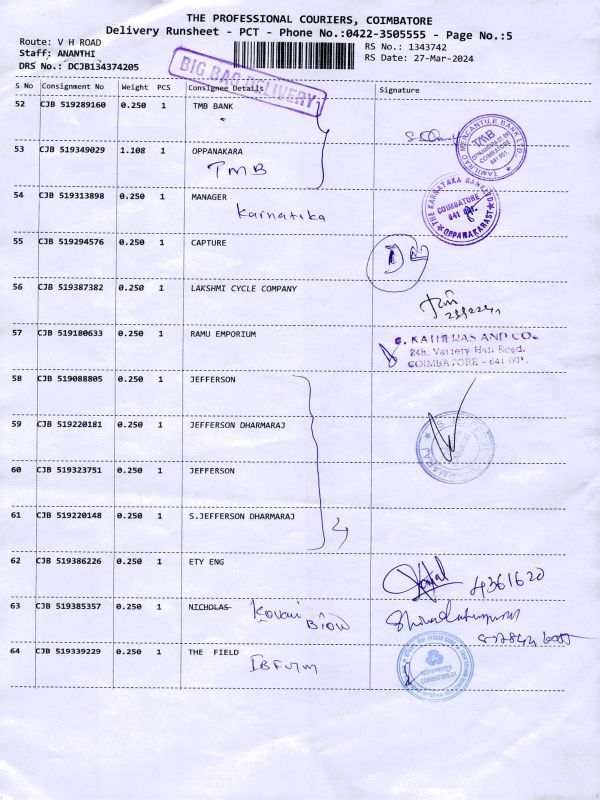 THE PROFESSIONAL COURIERS, COIMBATORE
Delivery Runsheet - PCT - Phone No.:0422-3505555 - Page No.:5
Route: V H ROAD
Staff: ANANTHI
DRS No.: DCJB134374205
RS No.: 1343742
RS Date: 27-Mar-2024
BIG BAG DELIVERY
S No Consignment No Weight PCS Consignee Details Signature
52 CJB 519289160 0.250 1 TMB BANK
TAMILNAD MERCANTILE BANK LTD
TMB
COIMBATORE
641 001
53 CJB 519349029 1.108 1 OPPANAKARA
TMB
54 CJB 519313898 0.250 1 MANAGER
Karnatika
THE KARNATAKA BANK LTD
COIMBATORE
641 001
OPPANAKARAST
55 CJB 519294576 0.250 1 CAPTURE
56 CJB 519387382 0.250 1 LAKSHMI CYCLE COMPANY
57 CJB 519180633 0.250 1 RAMU EMPORIUM
AND CO.
COIMBATORE - 641 001.
58 CJB 519088805 0.250 1 JEFFERSON
59 CJB 519220181 0.250 1 JEFFERSON DHARMARAJ
60 CJB 519323751 0.250 1 JEFFERSON
61 CJB 519220148 0.250 1 S.JEFFERSON DHARMARAJ
62 CJB 519386226 0.250 1 ETY ENG
63 CJB 519385357 0.250 1 NICHOLAS Kovai
64 CJB 519339229 0.250 1 THE FIELD
INDIAN BANK
COIMBATORE-01